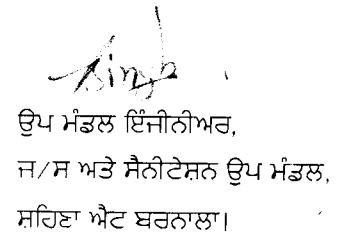 ਉਪ ਮੰਡਲ ਇੰਜੀਨੀਅਰ,
ਜ/ਸ ਅਤੇ ਸੈਨੀਟੇਸ਼ਨ ਉਪ ਮੰਡਲ,
ਸ਼ਹਿਣਾ ਐਟ ਬਰਨਾਲਾ।